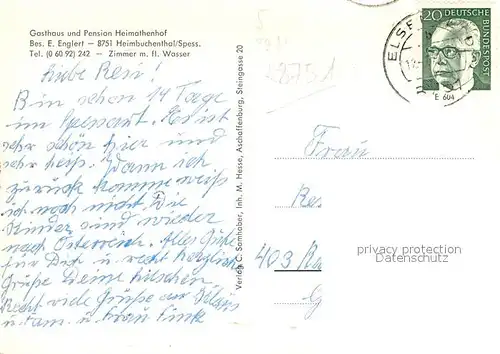 Gasthaus und Pension Heimathenhof
Bes. E. Englert – 8751 Heimbuchenthal/Spess.
Tel. (0 60 92) 242 – Zimmer m. fl. Wasser
Liebe Resi!
Bin schon 14 Tage
im Spessart. Es ist
sehr schön hier und
sehr heiß. Wann ich
zurück komme weiß
ich noch nicht. Die
Kinder sind wieder
nach Österreich. Alles Gute
für Dich u. recht herzliche
Grüße Deine
Recht viele Grüße an
u. Fam. u. Frau Fink
Verlag C. Samhaber, Inh. M. Hesse, Aschaffenburg, Steingasse 20
8751
20 DEUTSCHE
BUNDESPOST
ELSE
E 604
Frau
Res
privacy protection
Datenschutz
403 Ra
G